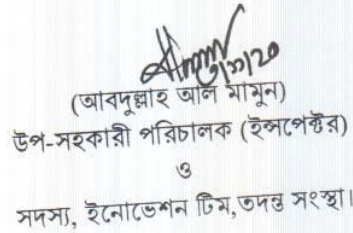 (আবদুল্লাহ আল মামুন)
উপ-সহকারী পরিচালক (ইন্সপেক্টর)
ও
সদস্য, ইনোভেশন টিম,তদন্ত সংস্থা।